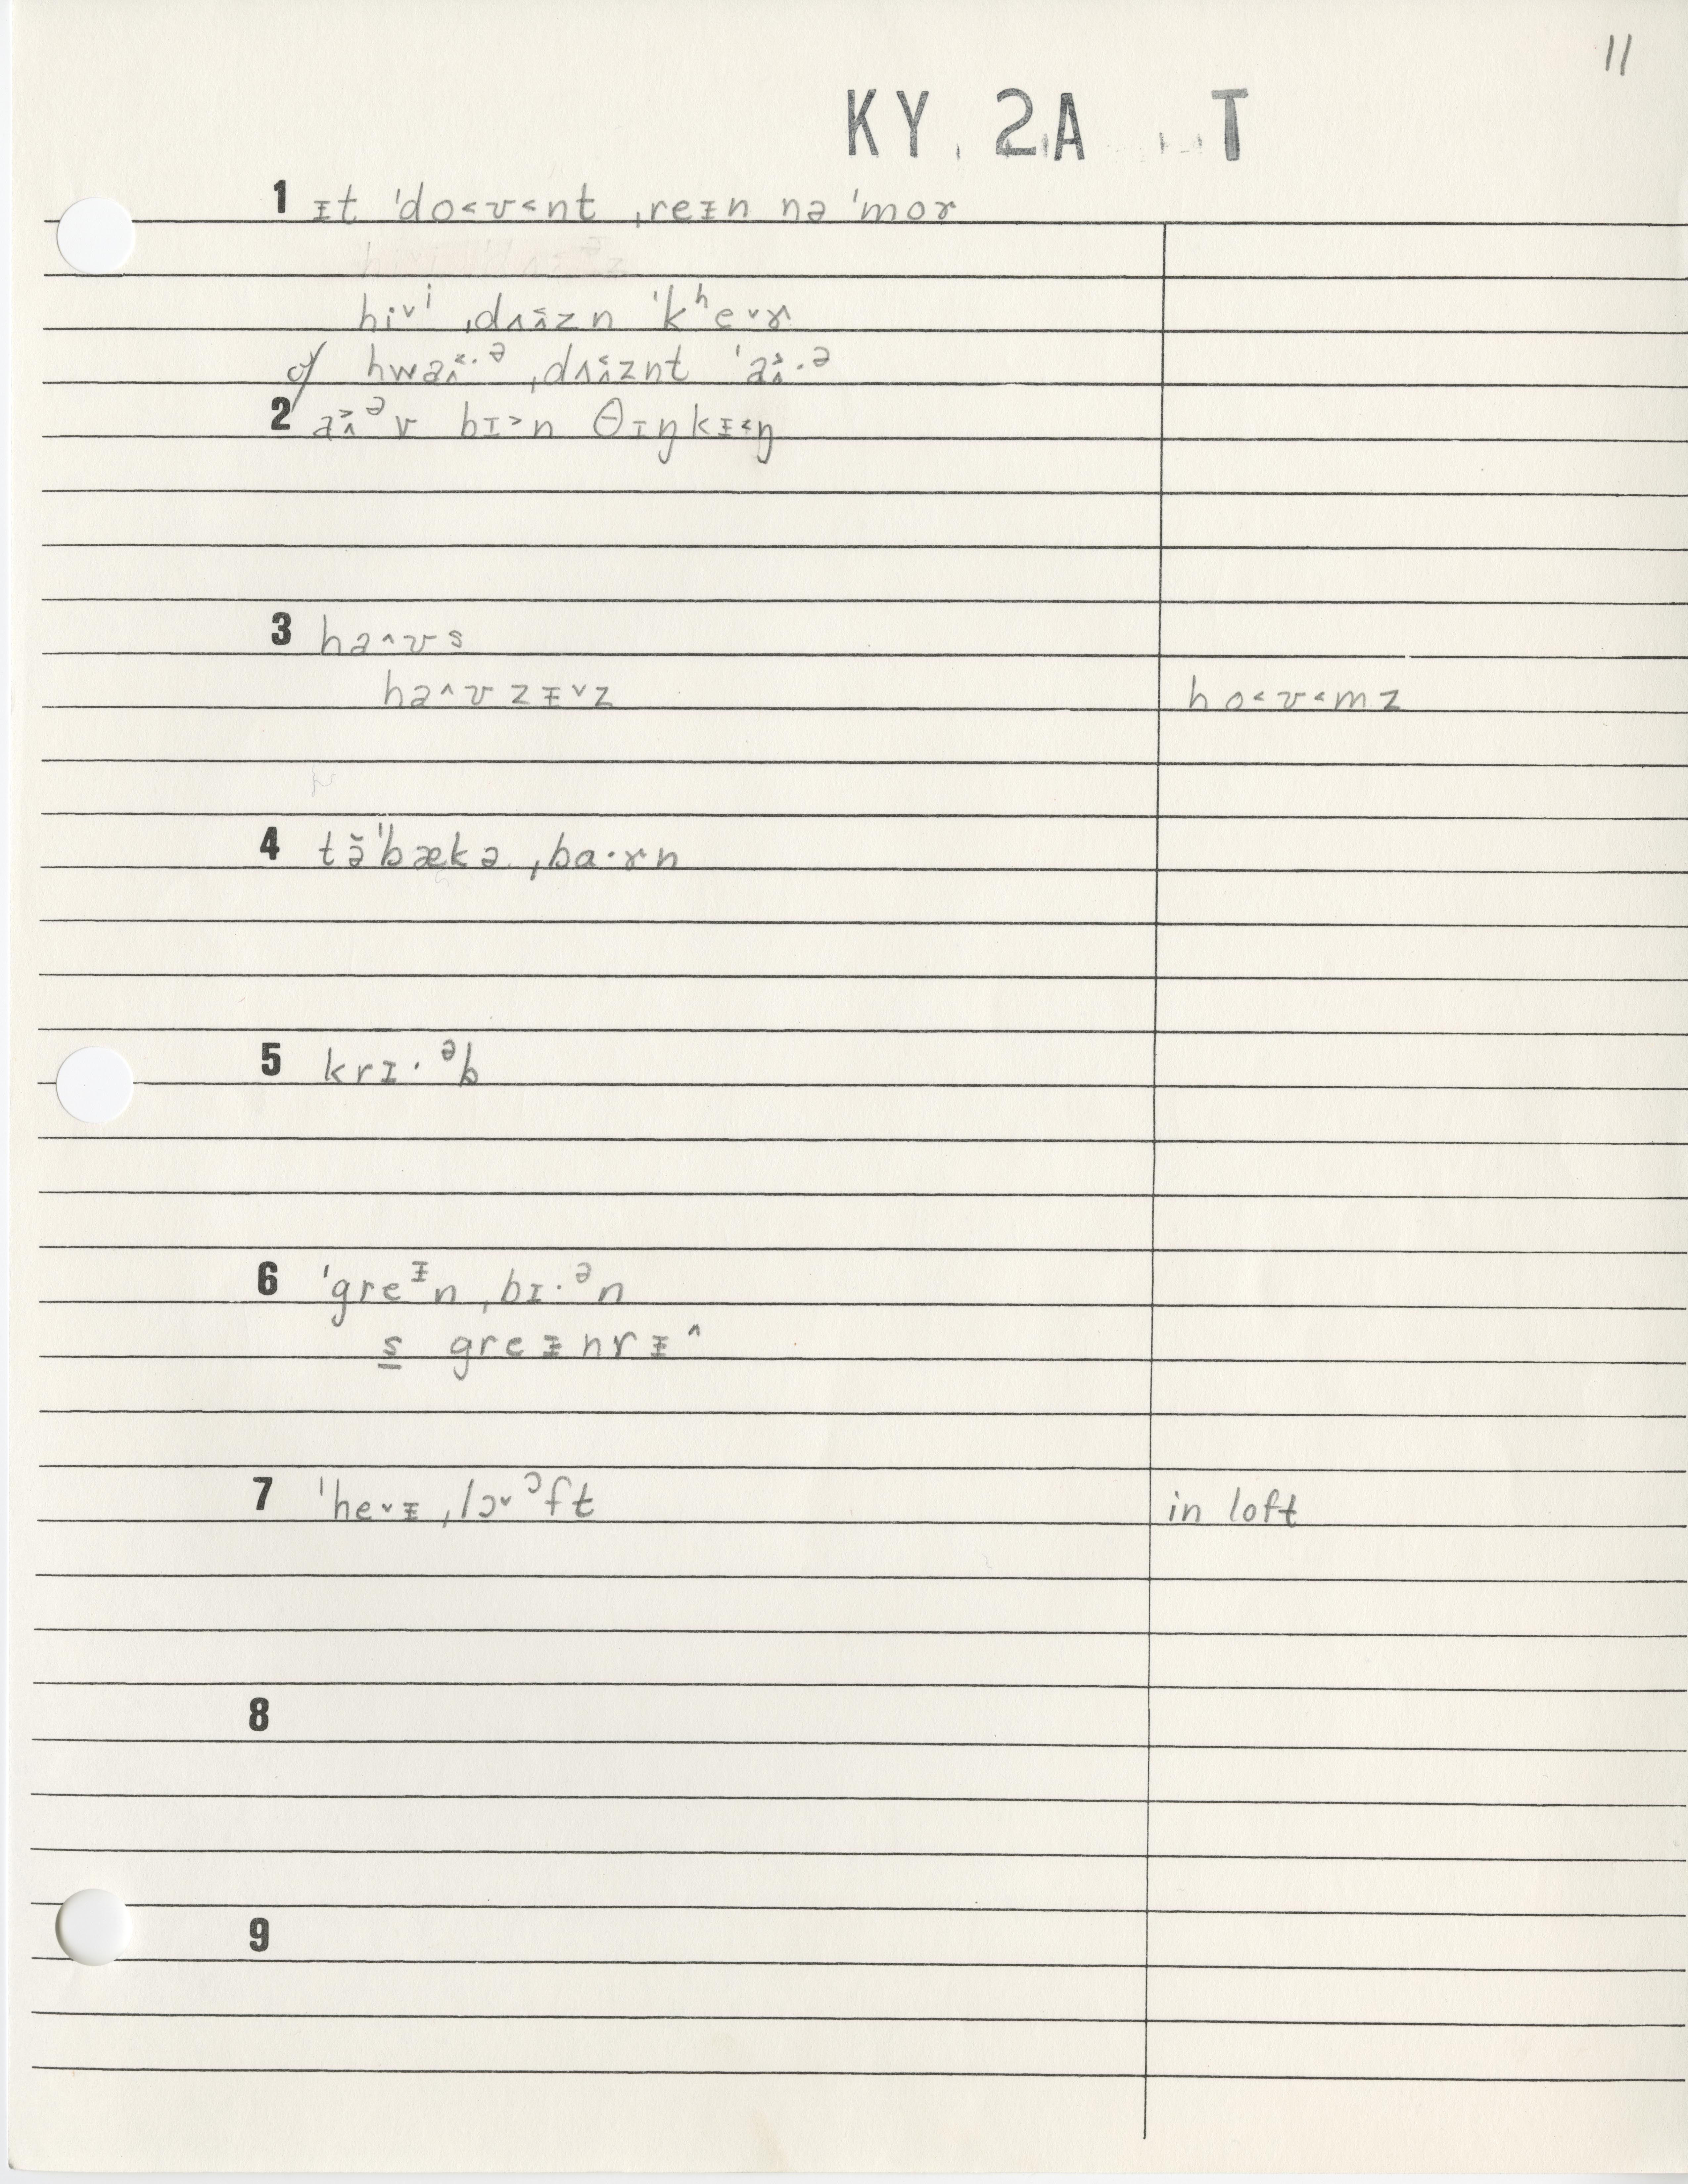 11
KY. 2A T
1 ᵻt ˈdo˂ʊ˂nt ˌreᵻn nə ˈmoɚ
hi˅ⁱ ˌdʌᵻ̂zn ˈkʰe˅ɚ
cf hwaɪ̯˂·ᵊ ˌdʌᵻ̂znt ˈaɪ̯˃·ᵊ
2 aɪ̯˃ᵊv bɪ˃n θɪŋkᵻ˂ŋ
3 ha˄ʊs
ha˄ʊzᵻ˅z ho˂ʊ˂mz
4 tə̆ˈbækə ˌbɑ·ɚn
5 krɪ·ᵊb
6 ˈgreᵻn ˌbɪ·ᵊn
s greᵻnrᵻ˄
7 ˈhe˅ᵻ ˌlɔ˅ᵓft in loft
8
9